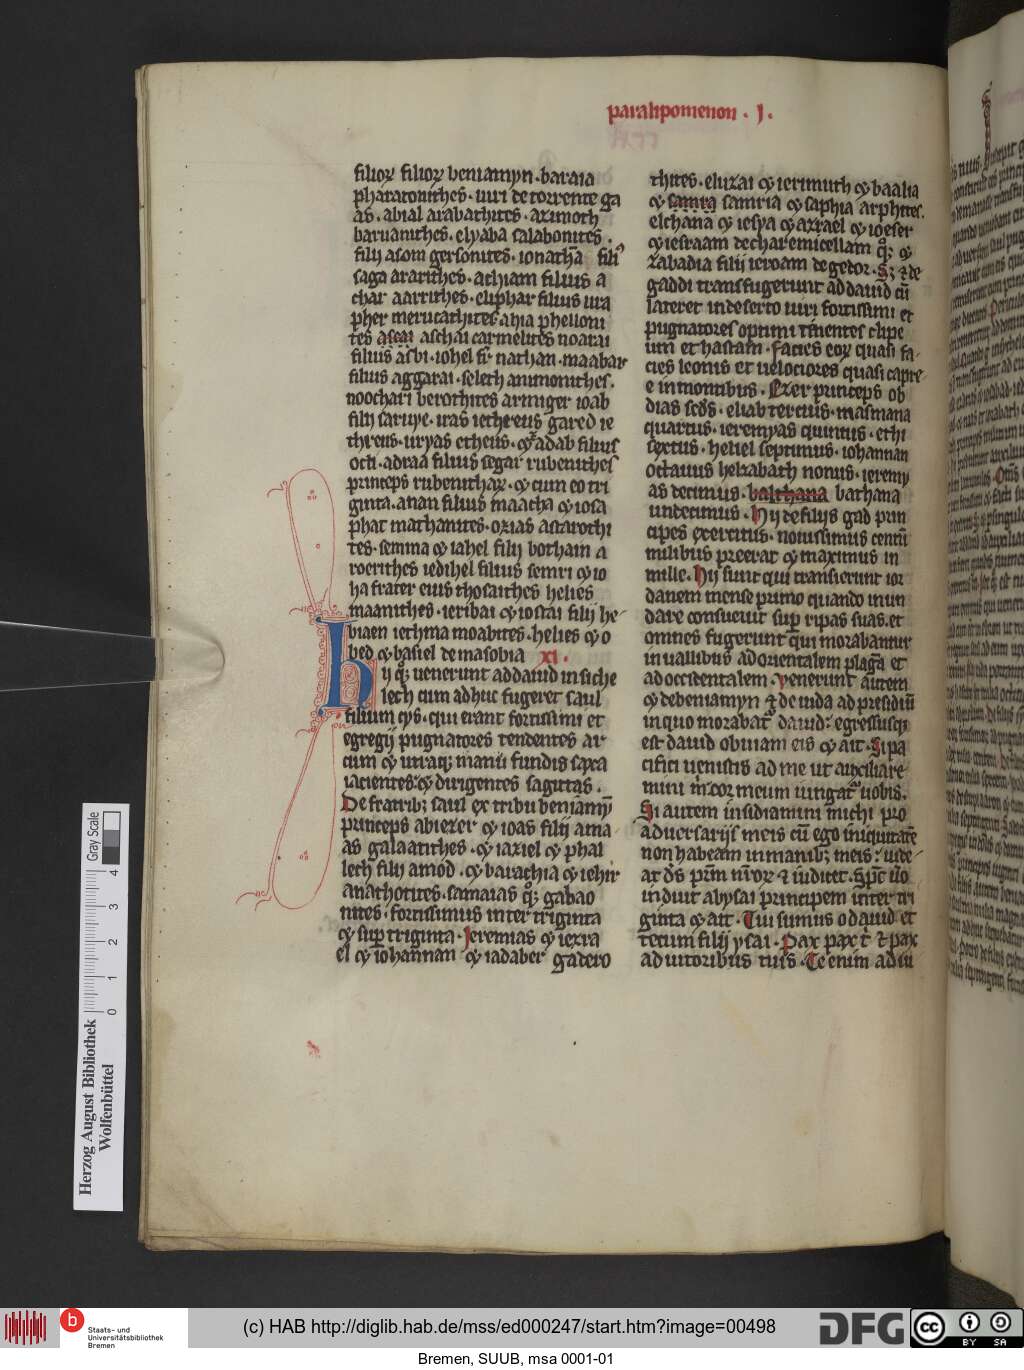 paralipomenon . I .
filioꝝ filioꝝ beniamyn · baraia
pharatonithes · uiri de torrente ga
as · abial arabathites · azmoth
baruanithes · elyaba salabonites ·
filij asom gersonites · ionathā filiꝰ
saga ararithes · achiam filius a
char aarrithes · eliphar filius ura
pher merucathites ahia phelloni
tes aseai aschai carmelites noarai
filius asbi · iohel fr̄ nathan · maabar
filius aggarai · selech ammonithes ·
noocharı berothites armiger ioab
filij saruye · iras iethereus gared ie
threus · uryas etheus · ⁊ zadab filius
ocli · adraa filius segar rubenithes
princeps rubenithaꝝ · ⁊ cum eo tri
ginta · anan filius maacha ⁊ iosa
phat mathanites · ozias astarothi
tes · semma ⁊ iahel filij botham a
roerithes iedihel filius semri ⁊ io
ha frater eius thosaithes helies
maanithes · ieribai ⁊ iostai filij he
biaen iethma moabites · helies ⁊ o
bed ⁊ hasiel de masobia XI .
Hij qͦꝫ uenerunt ad dauid in siche
lech cum adhuc fugeret saul
filium cys · qui erant fortissimi et
egregij pugnatores tendentes ar
cum ⁊ utraqꝫ manu fundis saxa
iacientes · ⁊ dirigentes sagittas ·
De fratribꝫ saul ex tribu beniamyn
princeps abiezer ⁊ ioas filij ama
as galaatithes · ⁊ iaziel ⁊ phal
lech filij amod · ⁊ barachia ⁊ iehir
anathotites · samaias qͦꝫ gabao
nites · fortissimus inter triginta
⁊ suꝑ triginta · Ieremias ⁊ iezra
el ⁊ iohannan ⁊ iadaber gadero
thites · eluzai ⁊ ierimuth ⁊ baalia
⁊ samra samria ⁊ saphia arphites ·
elchana ⁊ iesya ⁊ azrael ⁊ ioeser
⁊ iesraam de charemicellam qͦꝫ ⁊
zabadia filij ieroam de gedor · Sꝫ ⁊ de
gaddi transfugerunt ad dauid cū
lateret in deserto uiri fortissimi et
pugnatores optimi tenentes clipe
um et hastam · facies eoꝝ quasi fa
cies leonis et uelociores quasi capre
e in montibus · Ezer princeps ob
dias scd̄s · eliab tercius · masmana
quartus · ieremyas quintus · ethi
sextus · heliel septimus · iohannan
octauus helzabath nonus · ieremy
as decimus · balthana bathana
undecimus · Hij de filijs gad prin
cipes exercitus · nouissimus centū
milibus preerat ⁊ maximus in
mille · Hij sunt qui transierunt ior
danem mense primo quando inun
dare consueuit suꝑ ripas suas · et
omnes fugerunt qui morabantur
in uallibus ad orientalem plagā et
ad occidentalem · Venerunt autem
⁊ de beniamyn ⁊ de iuda ad presidiū
in quo morabat̄ dauid · egressusqꝫ
est dauid obuiam eis ⁊ ait · Si pa
cifici uenistis ad me ut auxiliare
mini m̄ cor meum iungat̄ uobis ·
Si autem insidiamini michi pro
aduersarijs meis cū ego iniquitatē
non habeam in manibꝫ meis : uide
at d̄s pr̄m nr̄orꝝ ⁊ iudicet · Sp̄c u͛o
induit abysai principem inter tri
ginta ⁊ ait · Tui sumus o dauid et
tecum filij ysai · Pax pax t̄ ⁊ pax
adiutoribus tuis · Te enim adiu
Herzog August Bibliothek
Wolfenbüttel
Gray Scale
0 1 2 3 4
b
Staats- und
Universitätsbibliothek
Bremen
(c) HAB http://diglib.hab.de/mss/ed000247/start.htm?image=00498
DFG
cc BY SA
Bremen, SUUB, msa 0001-01